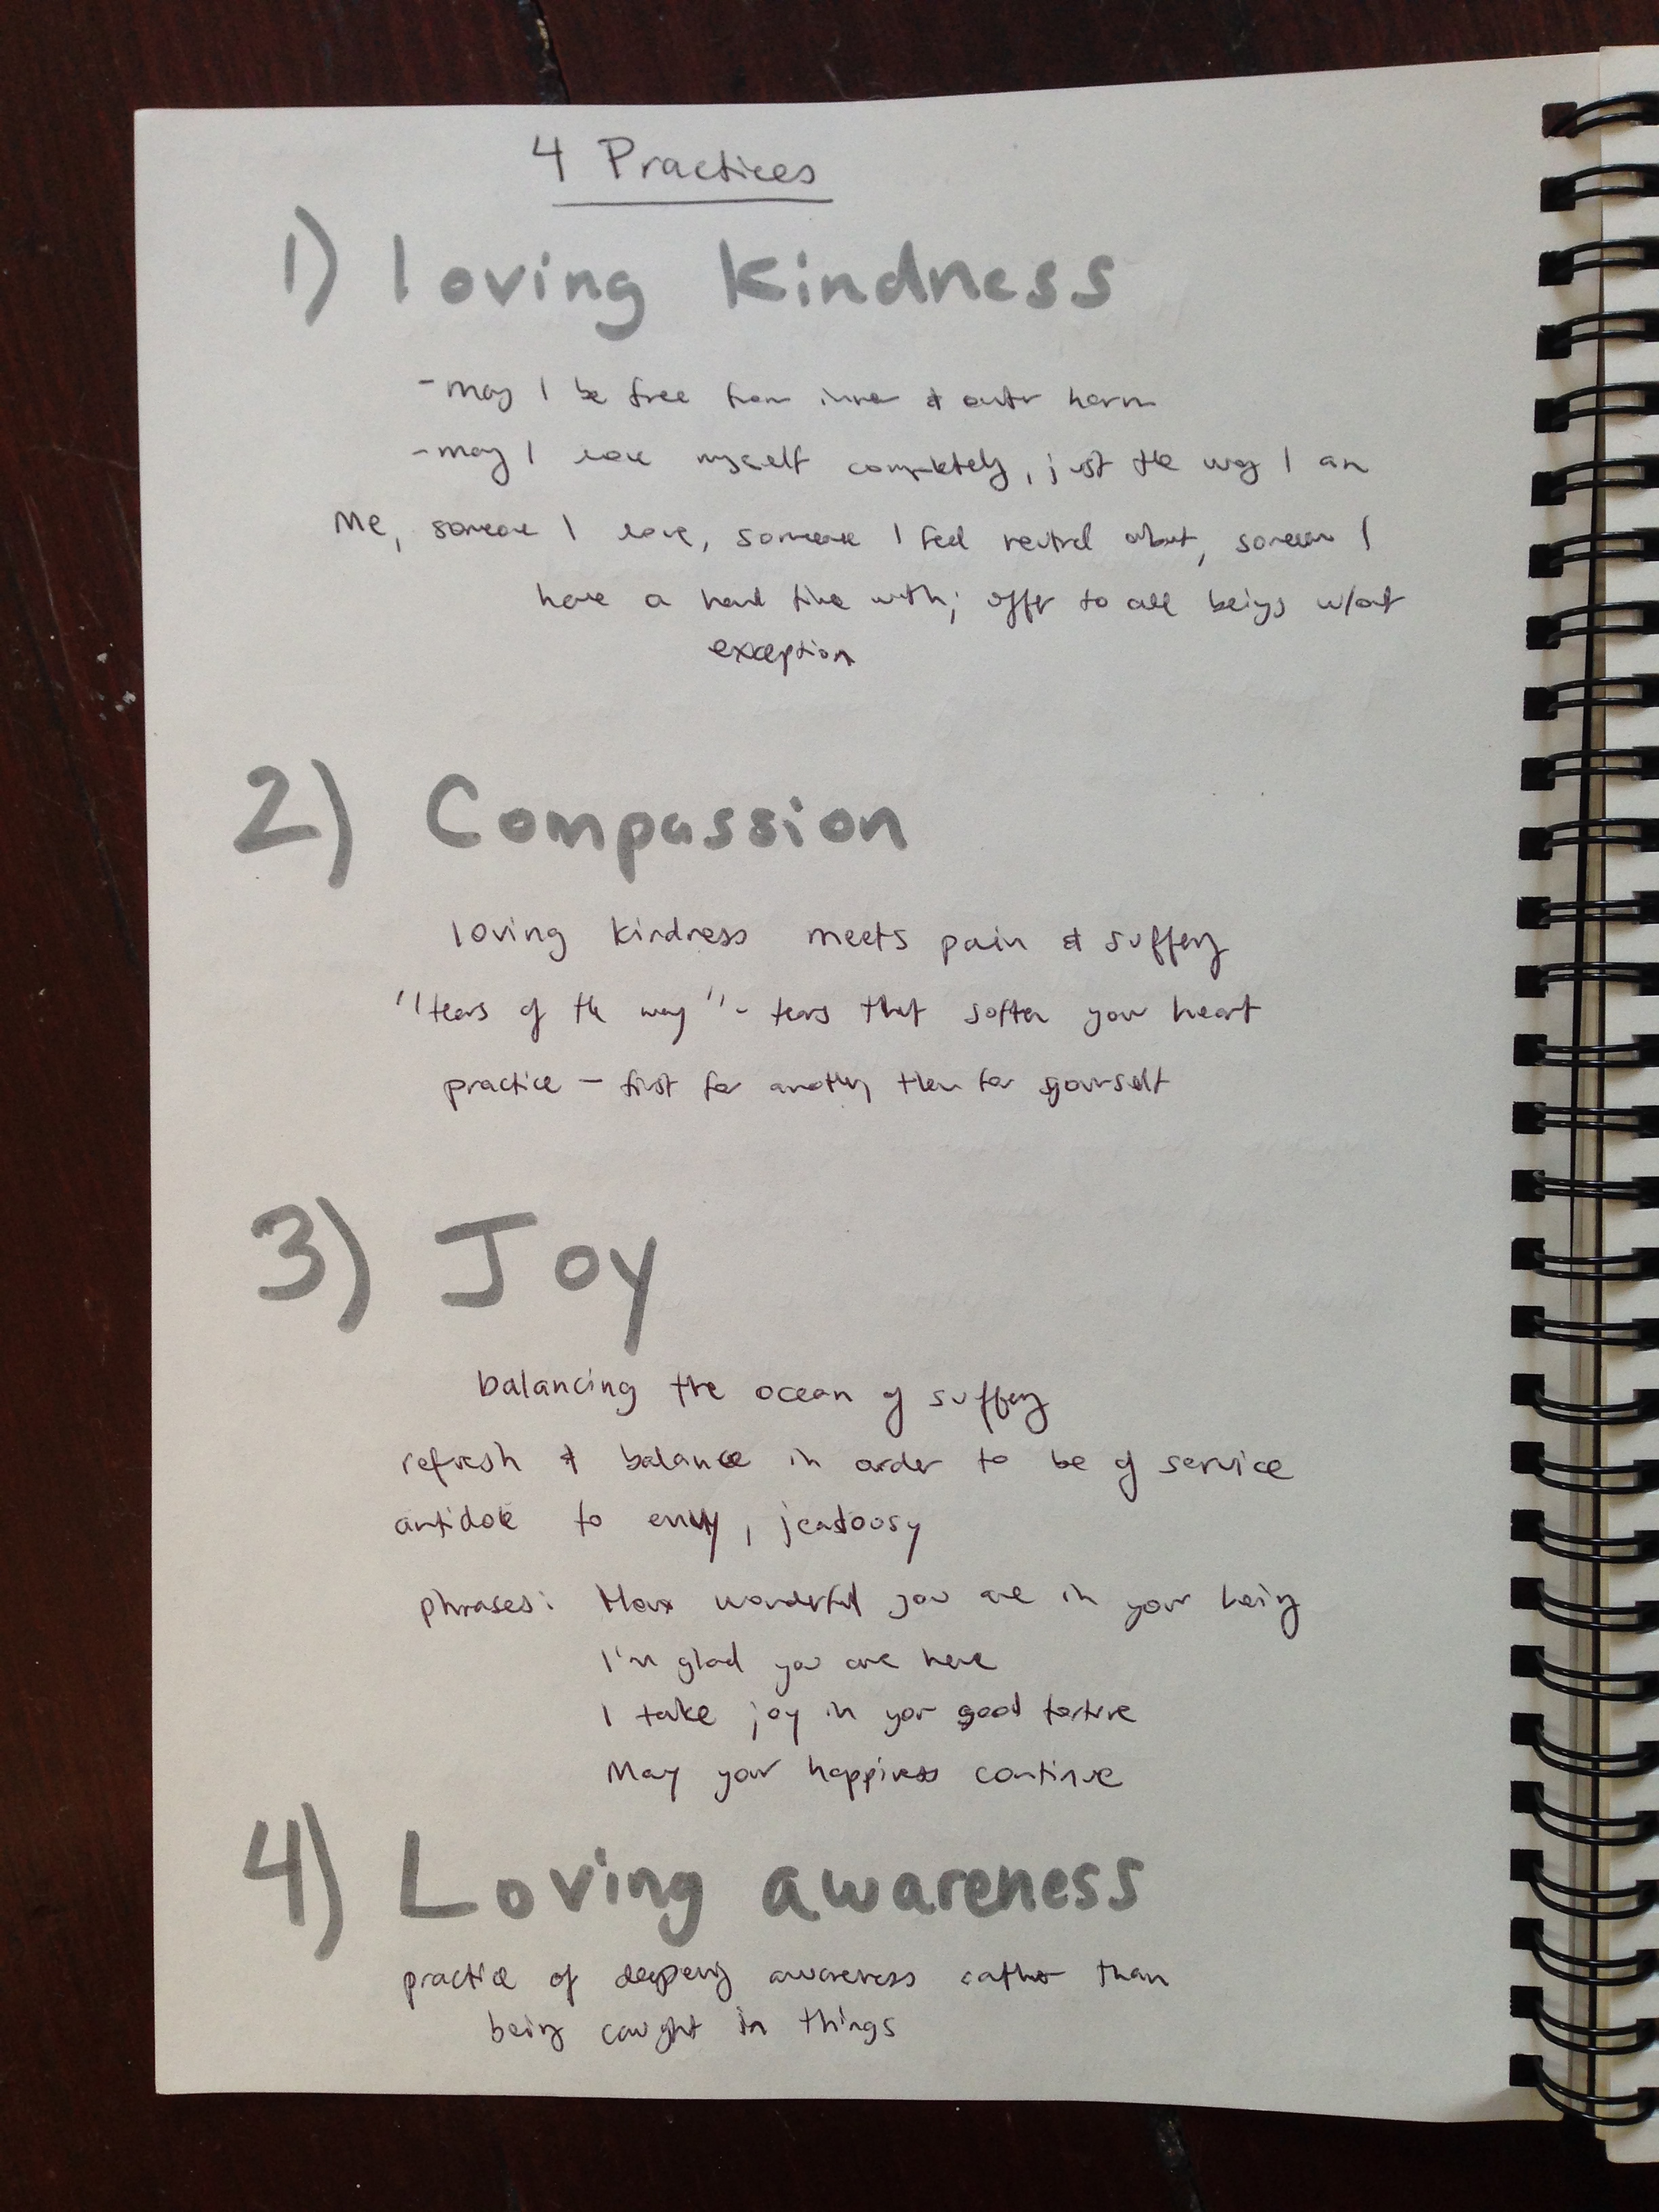 4 Practices
1) loving kindness
- may I be free from inner & outer harm
- may I love myself completely, just the way I am
Me, someone I love, someone I feel neutral about, someone I
have a hard time with; offer to all beings w/out
exception
2) Compassion
loving kindness meets pain & suffering
"tears of the way" - tears that soften your heart
practice - first for another, then for yourself
3) Joy
balancing the ocean of suffering
refresh & balance in order to be of service
antidote to envy, jealousy
phrases: How wonderful you are in your being
I'm glad you are here
I take joy in your good fortune
May your happiness continue
4) Loving awareness
practice of deepening awareness rather than
being caught in things